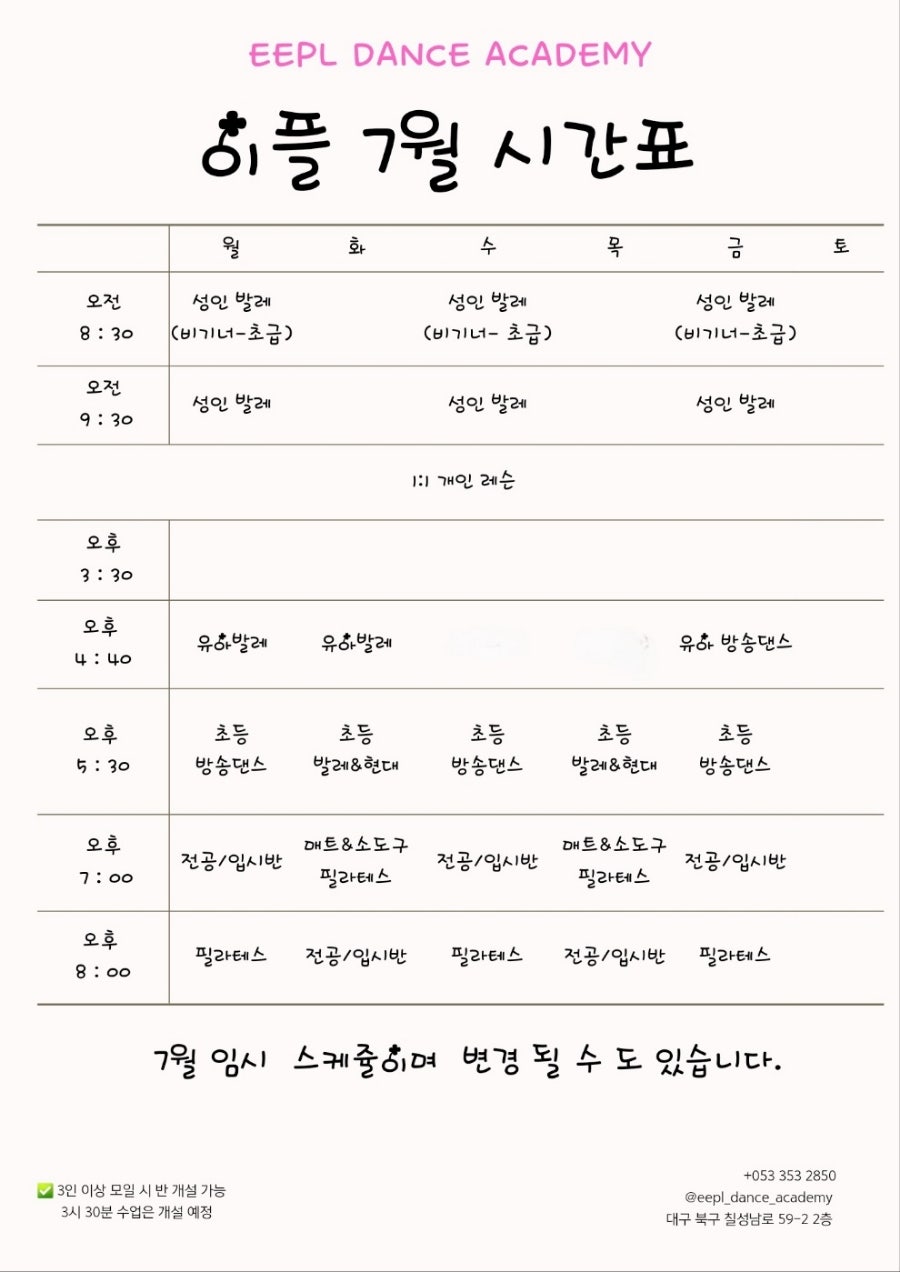 EEPL DANCE ACADEMY
이플 7월 시간표
월 화 수 목 금 토
오전 8:30
성인 발레 (비기너-초급)
성인 발레 (비기너- 초급)
성인 발레 (비기너-초급)
오전 9:30
성인 발레
성인 발레
성인 발레
1:1 개인 레슨
오후 3:30
오후 4:40
유아발레
유아발레
유아 방송댄스
오후 5:30
초등 방송댄스
초등 발레&현대
초등 방송댄스
초등 발레&현대
초등 방송댄스
오후 7:00
전공/입시반
매트&소도구 필라테스
전공/입시반
매트&소도구 필라테스
전공/입시반
오후 8:00
필라테스
전공/입시반
필라테스
전공/입시반
필라테스
7월 임시 스케줄이며 변경 될 수 도 있습니다.
✅ 3인 이상 모일 시 반 개설 가능
3시 30분 수업은 개설 예정
+053 353 2850
@eepl_dance_academy
대구 북구 칠성남로 59-2 2층